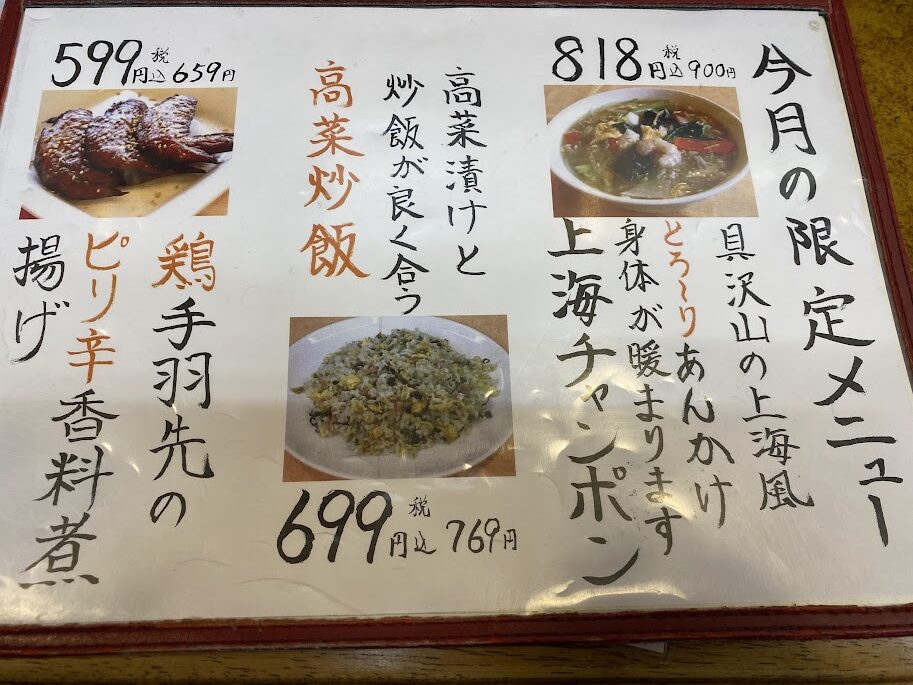 今月の限定メニュー
818円 税込900円
具沢山の上海風
とろ~りあんかけ
身体が暖まります
上海チャンポン
高菜漬けと
炒飯が良く合う
高菜炒飯
699円 税込769円
599円 税込659円
鶏手羽先の
ピリ辛香料煮
揚げ